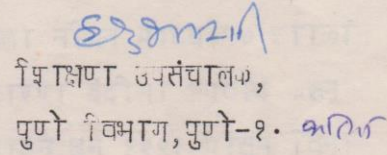 शिक्षण उपसंचालक,
पुणे विभाग, पुणे-१.